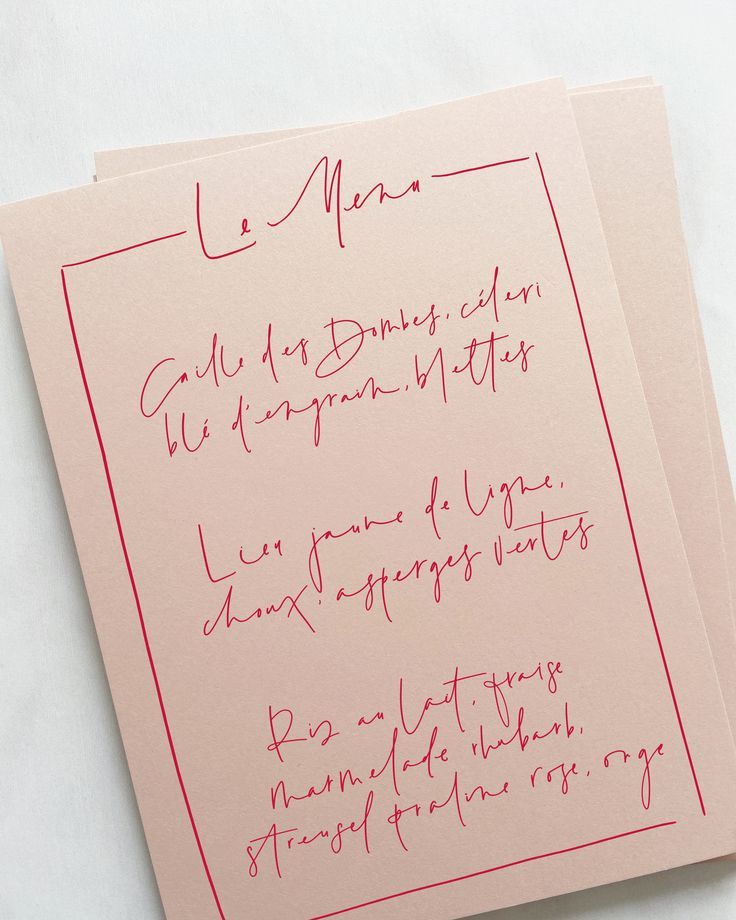 Le Menu
Caille des Dombes, céleri
blé d'engrain, blettes
Lieu jaune de ligne,
choux, asperges vertes
Riz au lait, fraise
marmelade rhubarb,
streusel praline rose, orge